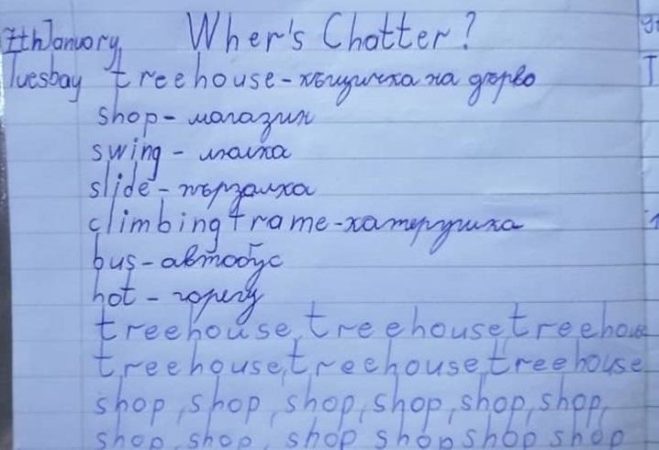 7thJanuary Wher's Chatter?
Tuesbay treehouse - къщичка на дърво
shop - магазин
swing - люлка
slide - пързалка
climbingtrame - катерушка
bus - автобус
hot - горещ
treehouse, treehouse, treehouse
treehouse, treehouse, treehouse
shop, shop, shop, shop, shop, shop,
shop, shop, shop shop shop shop